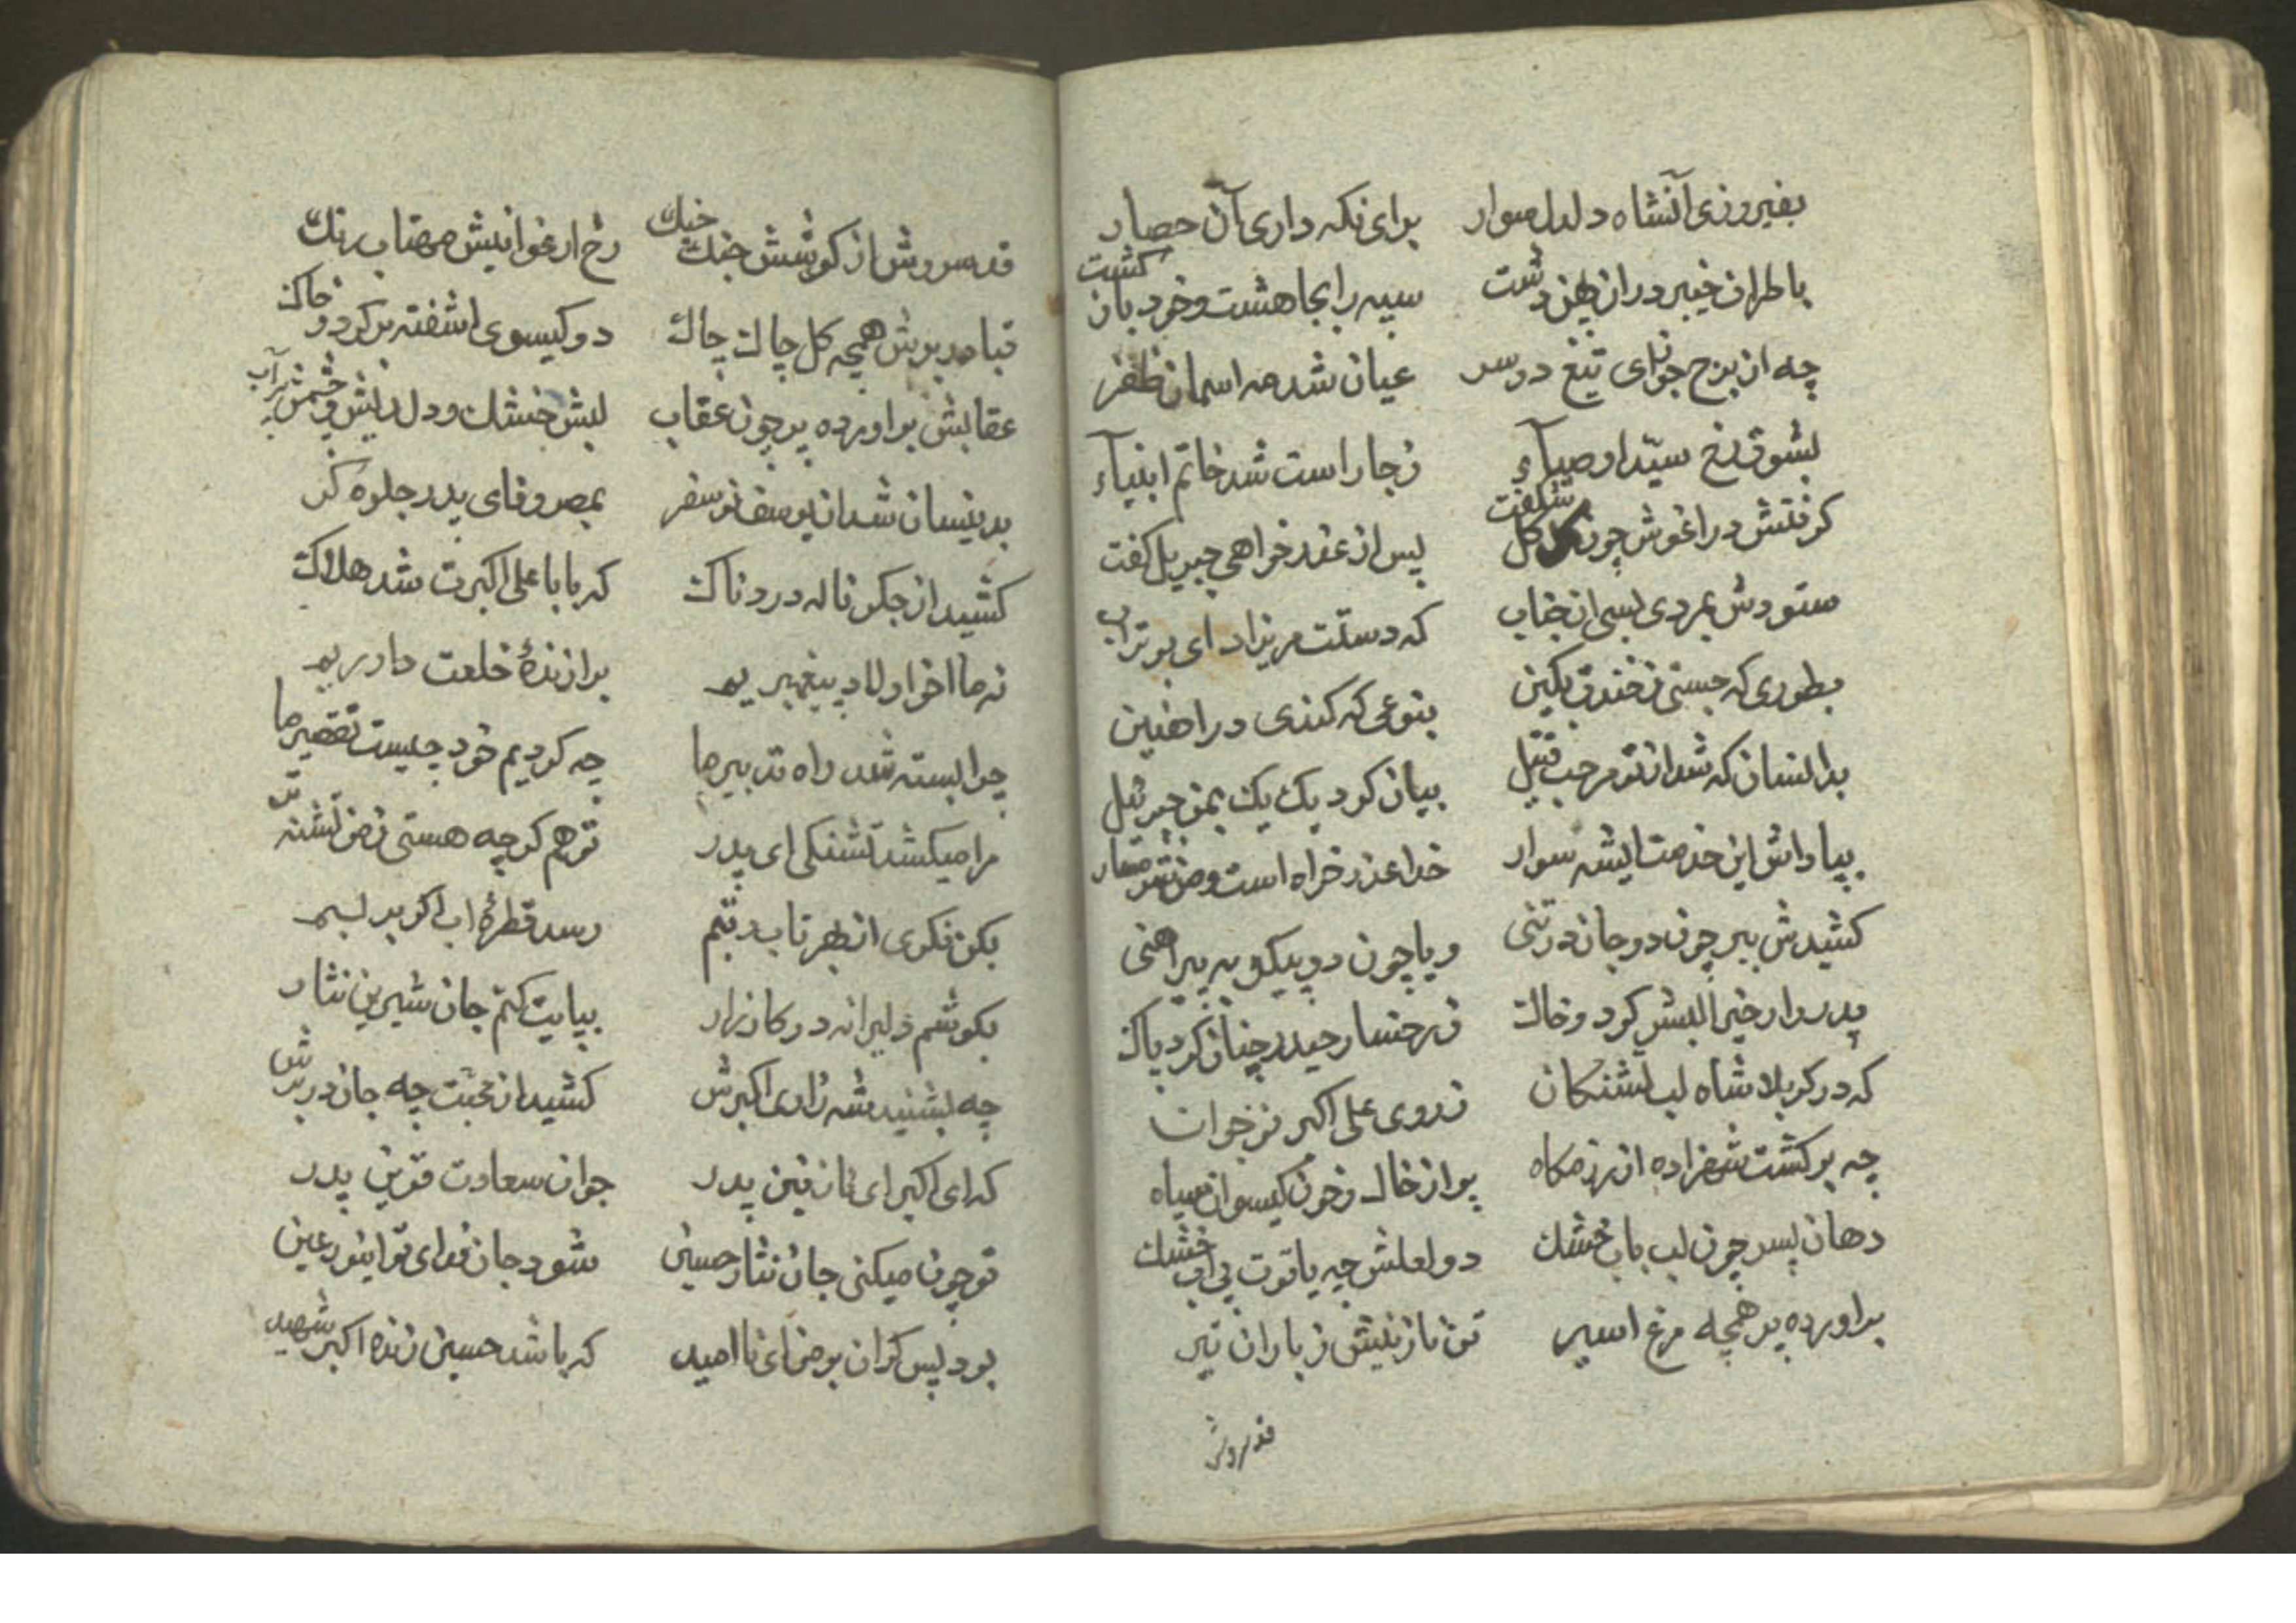 بفیروزی آنشاه دلدل سوار برای نکه داری آن حصار
باطراف خیبر دران پهن دشت سپه را بجا هشت و خود بازکشت
چه از برج جوزای تیغ دوسر عیان شد مه اسمان ظفر
بشوق رخ سیّد اوصیآء زجا راست شد خاتم انبیآء
کرفتش در اغوش چون کل کل شکفت پس از عذر خواهی جبریل کفت
ستودش بمردی بسی انجناب که دستت مریزاد ای بوتراب
بطوری که جستی زخندق بکین بنوعی که کندی در اهنین
بدانسان که شد از تو مرحب قتیل بیان کرد یک یک بمن جبرئیل
بپاداش این خدمت ایشه سوار خدا عذر خواه است و من شرمسار
کشیدش ببر چون دو جان در تنی و یا چون دو پیکر به پیراهنی
پدروار خیرالبشر کرد و خاک ز رخسار حیدر چنان کرد پاک
که در کربلا شاه لب تشنکان ز روی علی اکبر نوخوان
چه برکشت شهزاده از رزمکاه پر از خاک و خون کیسوان سیاه
دهان پسر چون لب باب خشک دو لعلش چه یاقوت بی اب خشک
براورده پر همچه مرغ اسیر تن نازنینش ز باران تیر
قد سروش
قد سروش از کوشش جنک خنک رخ ارغوانیش مهتاب رنک
قبا در برش همچه کل چاک چاک دو کیسوی اشفته پر کرد و خاک
عقابش براورده پر چون عقاب لبش خشک و دل ریش و چشمش پر آب
بدینسان شد ان یوسف نو سفر بمصر وفای پدر جلوه کر
کشید از جکر ناله دردناک که بابا علی اکبرت شد هلاک
نه ما اخر اولاد پیغمبریم برازندهٔ خلعت داوریم
چرا بسته شد راه تدبیر ما چه کردیم خود چیست تقصیر ما
مرا میکشد تشنکی ای پدر تو هم کرچه هستی ز من تشنه تر
بکن فکری از بهر تاب و تبم رسد قطرهٔ اب اکر بر لبم
بکوشم دلیرانه در کارزار بپایت کنم جان شیرین نثار
چه بشنید شه زاری اکبرش کشید از محبّت چه جان در برش
که ای اکبر ای نازنین پدر جوان سعادت قرین پدر
تو چون میکنی جان نثار حسین شود جان فدای تو ای نور عین
بود پس کران بر من ای نا امید که باشد حسین زنده اکبر شهید